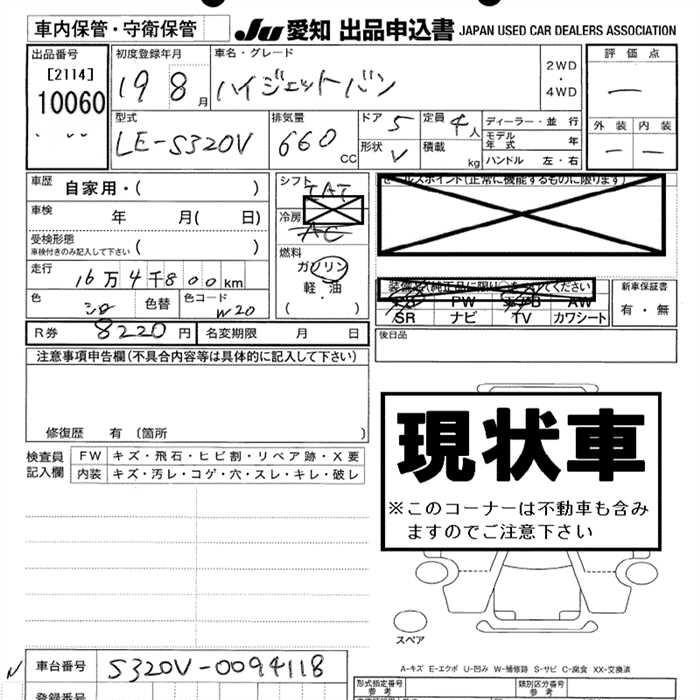 車内保管・守衛保管
JU 愛知 出品申込書 JAPAN USED CAR DEALERS ASSOCIATION
出品番号
[2114]
10060
初度登録年月
19 8月
車名・グレード
ハイジェットバン
2WD
・
4WD
評価点
―
外装 内装
― ―
型式
LE-S320V
排気量
660 CC
ドア 5
形状 V
定員 4人
積載 kg
ディーラー・並行
モデル年式 年
ハンドル 左・右
車歴 自家用・( )
車検 年 月( 日)
受検形態
車検付きのみ記入して下さい ( )
走行 16万4千800km
色 シロ 色替 色コード W20
R券 8220円 名変期限 月 日
シフト
IAT
冷房
AC
燃料
ガソリン
軽・油
( )
セールスポイント(正常に機能するものに限ります)
PW AW
SR ナビ TV カワシート
新車保証書
有・無
後日品
注意事項申告欄(不具合内容等は具体的に記入して下さい)
修復歴 有 〔箇所 〕
検査員記入欄
FW キズ・飛石・ヒビ割・リペア跡・X要
内装 キズ・汚レ・コゲ・穴・スレ・キレ・破レ
現状車
※このコーナーは不動車も含みますのでご注意下さい
スペア
A-キズ E-エクボ U-凹み W-補修跡 S-サビ C-腐食 XX-交換済
車台番号 S320V-0094118
登録番号
型式指定番号
参考
類別区分番号
参考